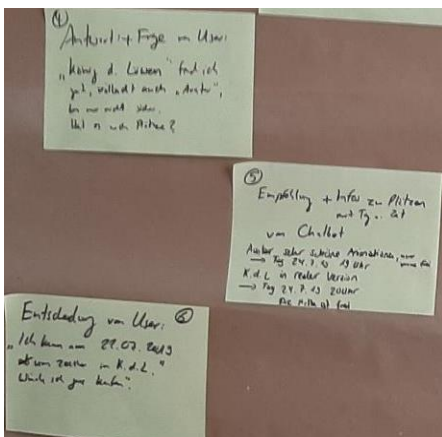 ④
Antwort + Frage von User:
„König d. Löwen" fand ich
gut, vielleicht auch „Avatar",
bin mir nicht sicher.
Hat es noch Plätze?
⑤
Empfehlung + Infos zu Plätzen
mit Tag u. Zeit
vom Chatbot
Avatar sehr schöne Animationen,
→ Tag 24.7.19 19 Uhr
K.d.L in realer Version
→ Tag 24.7.19 20 Uhr
frei
Entscheidung von User: ⑥
„Ich kann am 22.07.2019
in K.d.L."
ich gern kaufen".